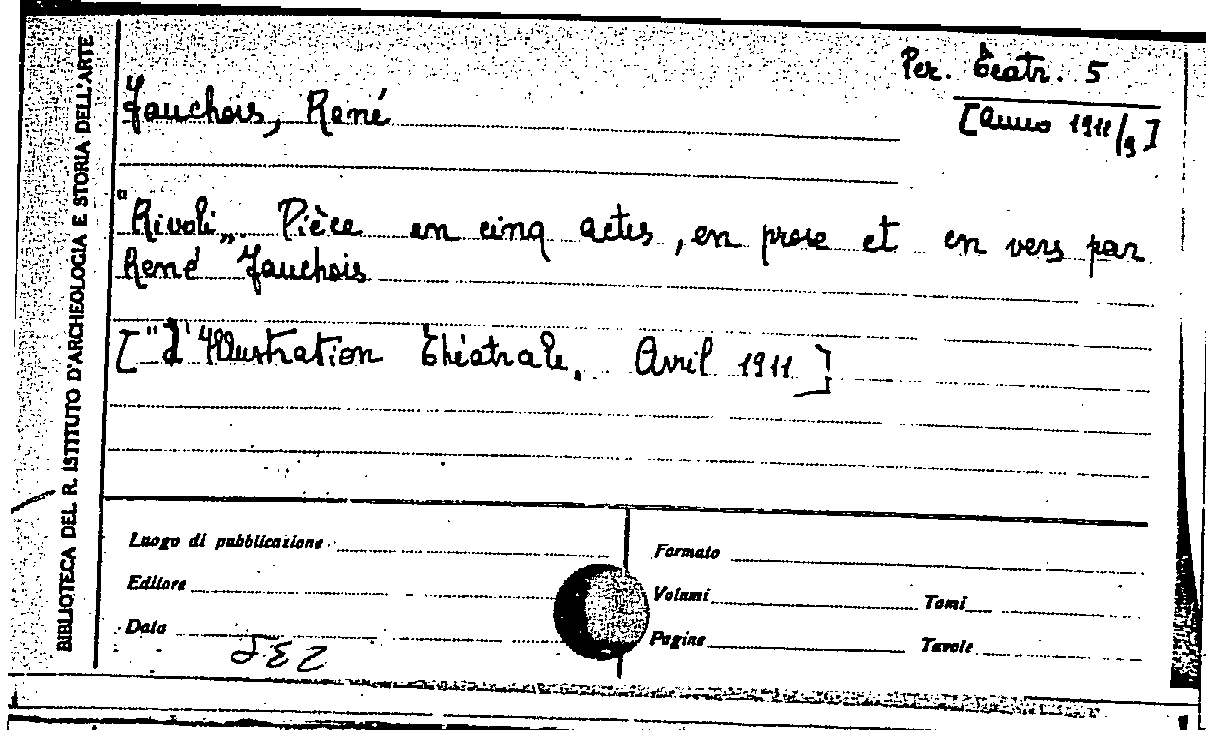 BIBLIOTECA DEL R. ISTITUTO D'ARCHEOLOGIA E STORIA DELL'ARTE
Per. Teatr. 5
[Anno 1911/9]
Fauchois, René
"Rivoli„ Pièce en cinq actes, en prose et en vers par
René Fauchois
["L'Illustration Théatrale. Avril 1911]
Luogo di pubblicazione
Formato
Editore
Volumi
Tomi
Data
Pagine
Tavole